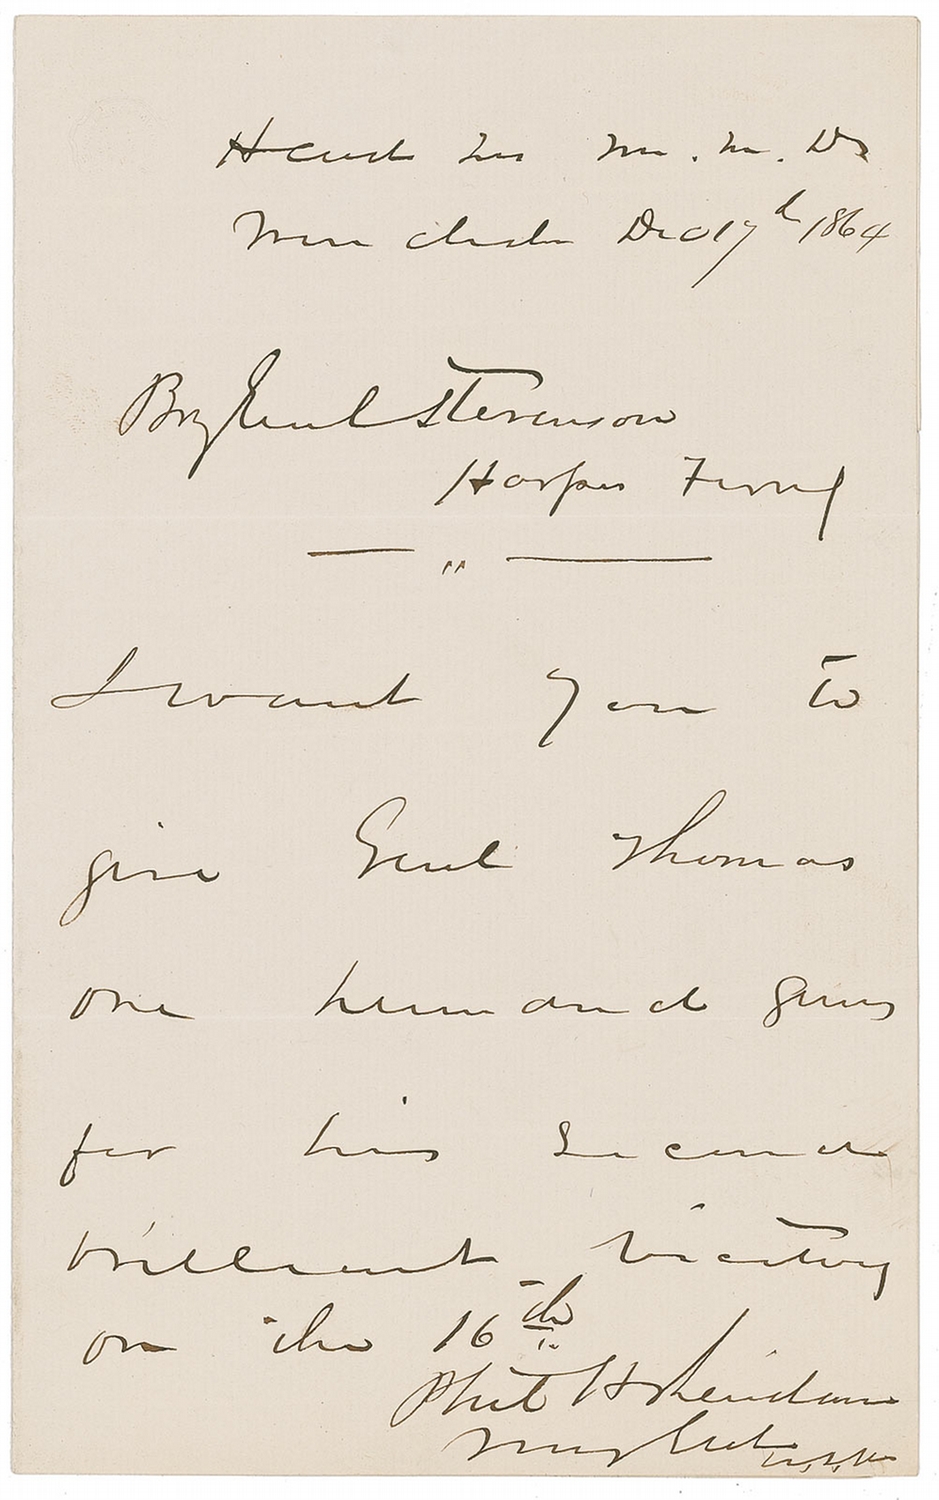 Head Qrs M. M. D.
Winchester Dec 17th 1864
Brg Genl Stevenson
Harpers Ferry
I want you to
give Genl Thomas
one hundred guns
for his second
brilliant victory
on the 16th
Phil H Sheridan
Maj Genl U.S.A.